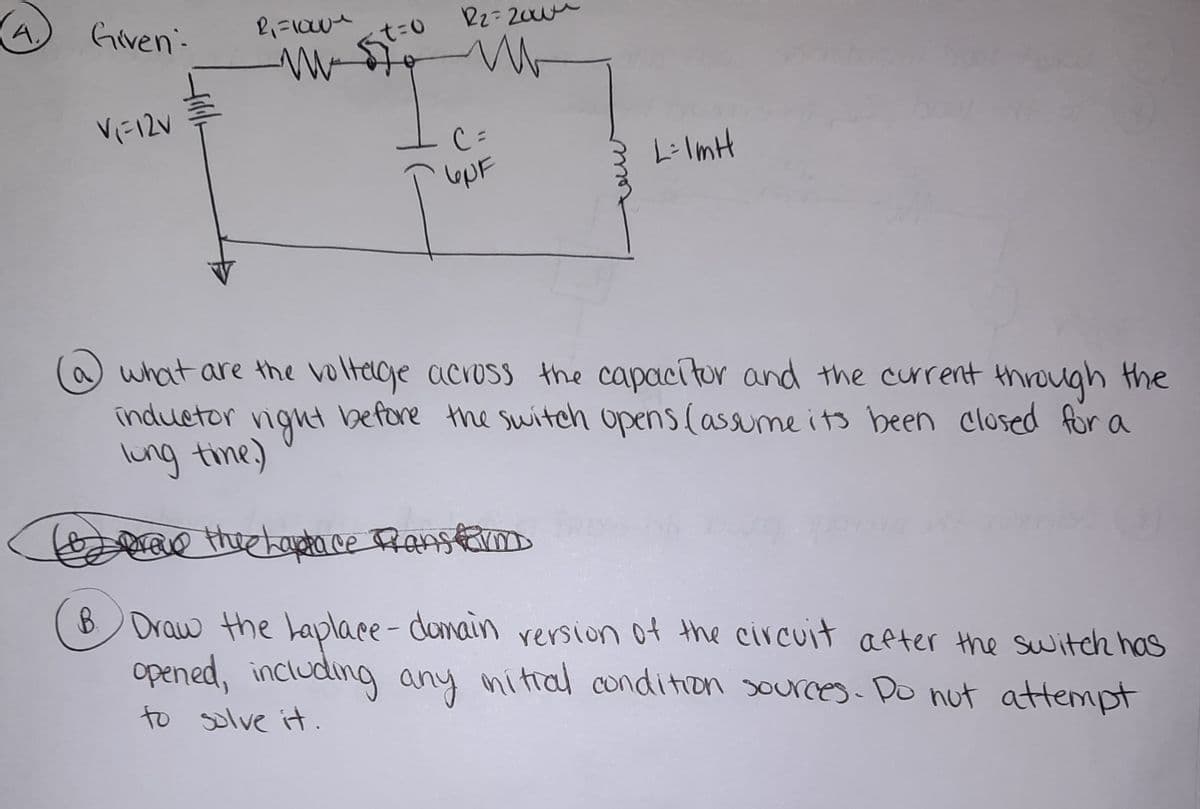 4. Given:
R₁=100Ω t=0 R2=200Ω
V₁=12V
C=
6µF
L=1mH
(a) what are the voltage across the capacitor and the current through the
inductor right before the switch opens (assume its been closed for a
long time.)
Draw the Laplace Transform
B. Draw the Laplace-domain version of the circuit after the switch has
opened, including any initial condition sources. Do not attempt
to solve it.